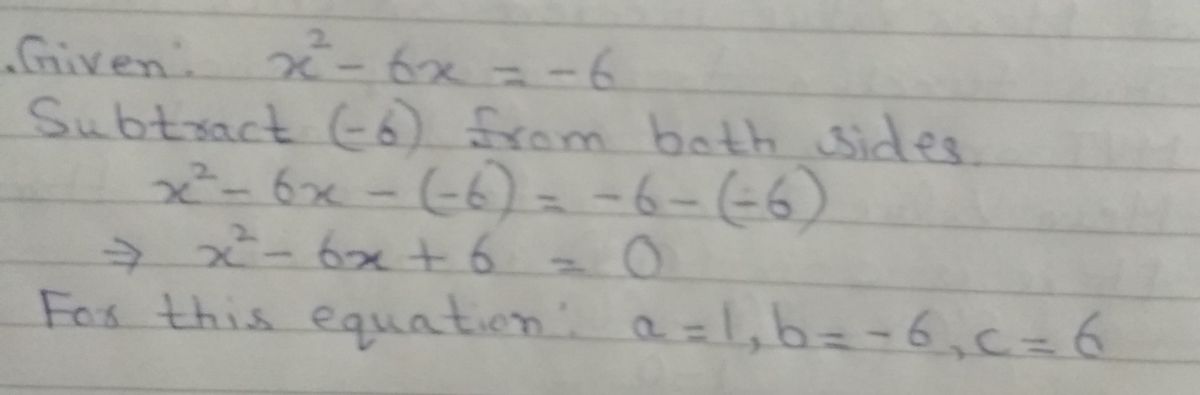 .Given: x² - 6x = -6
Subtract (-6) from both sides.
x² - 6x - (-6) = -6 - (-6)
⇒ x² - 6x + 6 = 0
For this equation: a = 1, b = -6, c = 6